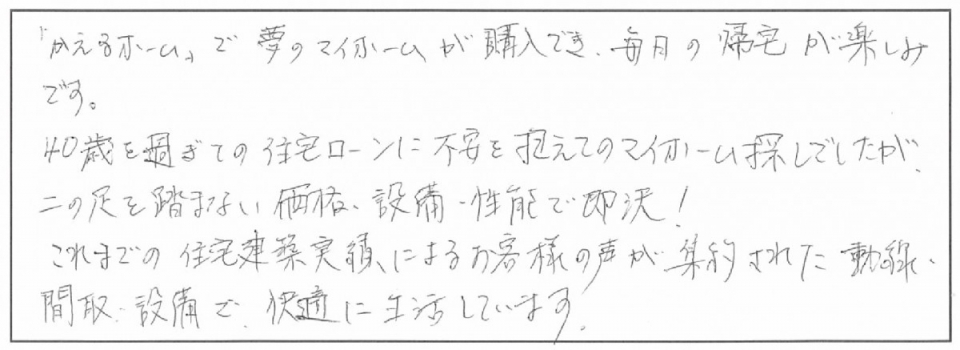 「かえるホーム」で夢のマイホームが購入でき、毎日の帰宅が楽しみ
です。
40歳を過ぎての住宅ローンに不安を抱えてのマイホーム探しでしたが、
二の足を踏まない価格、設備・性能で即決！
これまでの住宅建築実績によるお客様の声が集約された動線、
間取、設備で、快適に生活しています。